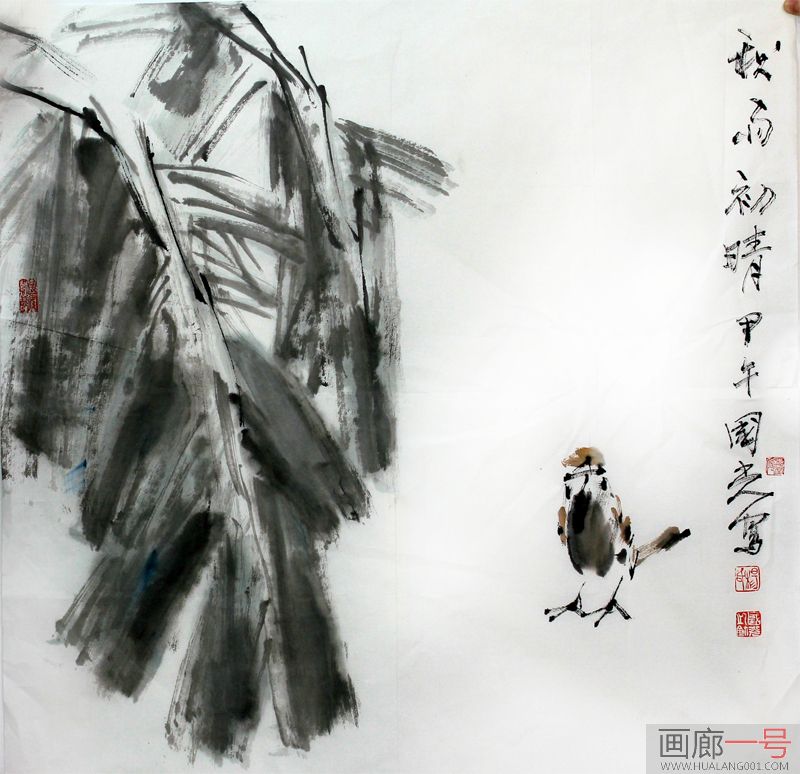 秋雨初晴 甲午 國光寫
画廊一号
WWW.HUALANG001.COM